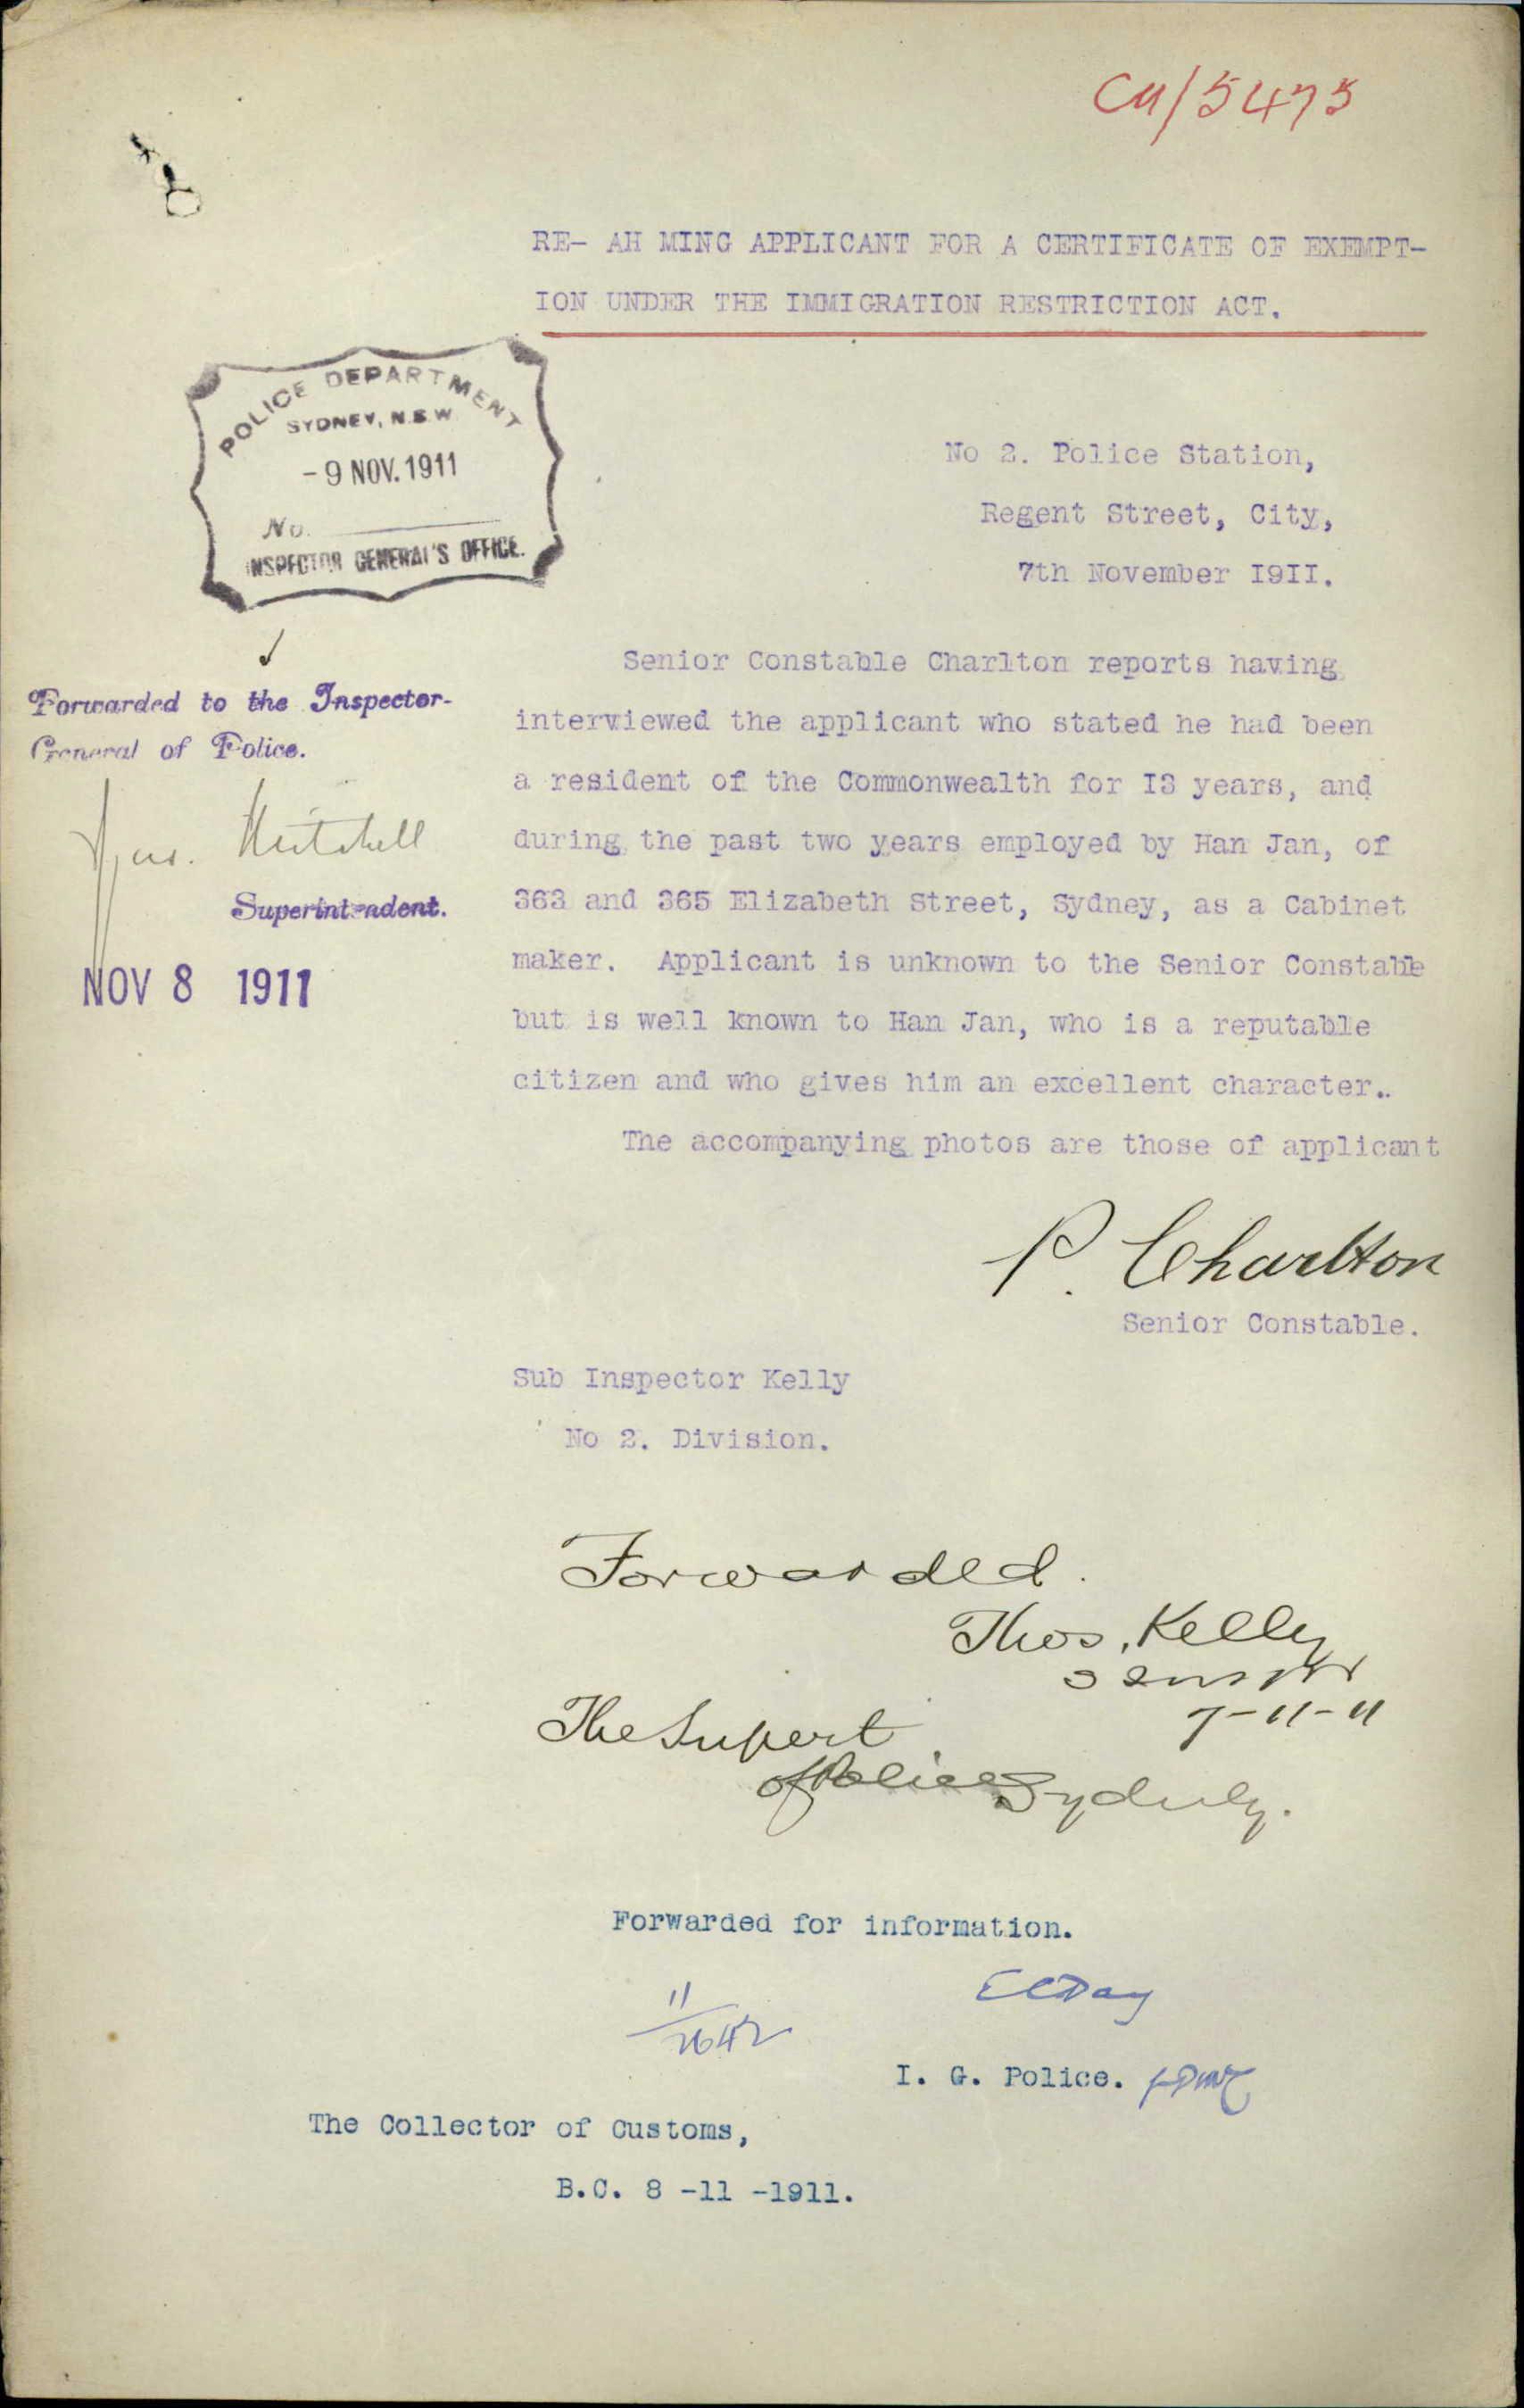 C11/5475
RE- AH MING APPLICANT FOR A CERTIFICATE OF EXEMPT-
ION UNDER THE IMMIGRATION RESTRICTION ACT.
POLICE DEPARTMENT
SYDNEY, N.S.W.
-9 NOV. 1911
No.
INSPECTOR GENERAL'S OFFICE.
No 2. Police Station,
Regent Street, City,
7th November I9II.
Forwarded to the Inspector-
General of Police.
Jas. Mitchell
Superintendent.
NOV 8 1911
Senior Constable Charlton reports having
interviewed the applicant who stated he had been
a resident of the Commonwealth for I3 years, and
during the past two years employed by Han Jan, of
363 and 365 Elizabeth Street, Sydney, as a Cabinet
maker. Applicant is unknown to the Senior Constable
but is well known to Han Jan, who is a reputable
citizen and who gives him an excellent character..
The accompanying photos are those of applicant
P. Charlton
Senior Constable.
Sub Inspector Kelly
No 2. Division.
Forwarded.
Thos. Kelly
7-11-11
The Supert
of Police Sydney.
Forwarded for information.
11/2642
ECDay
I. G. Police.
The Collector of Customs,
B.C. 8 -11 -1911.